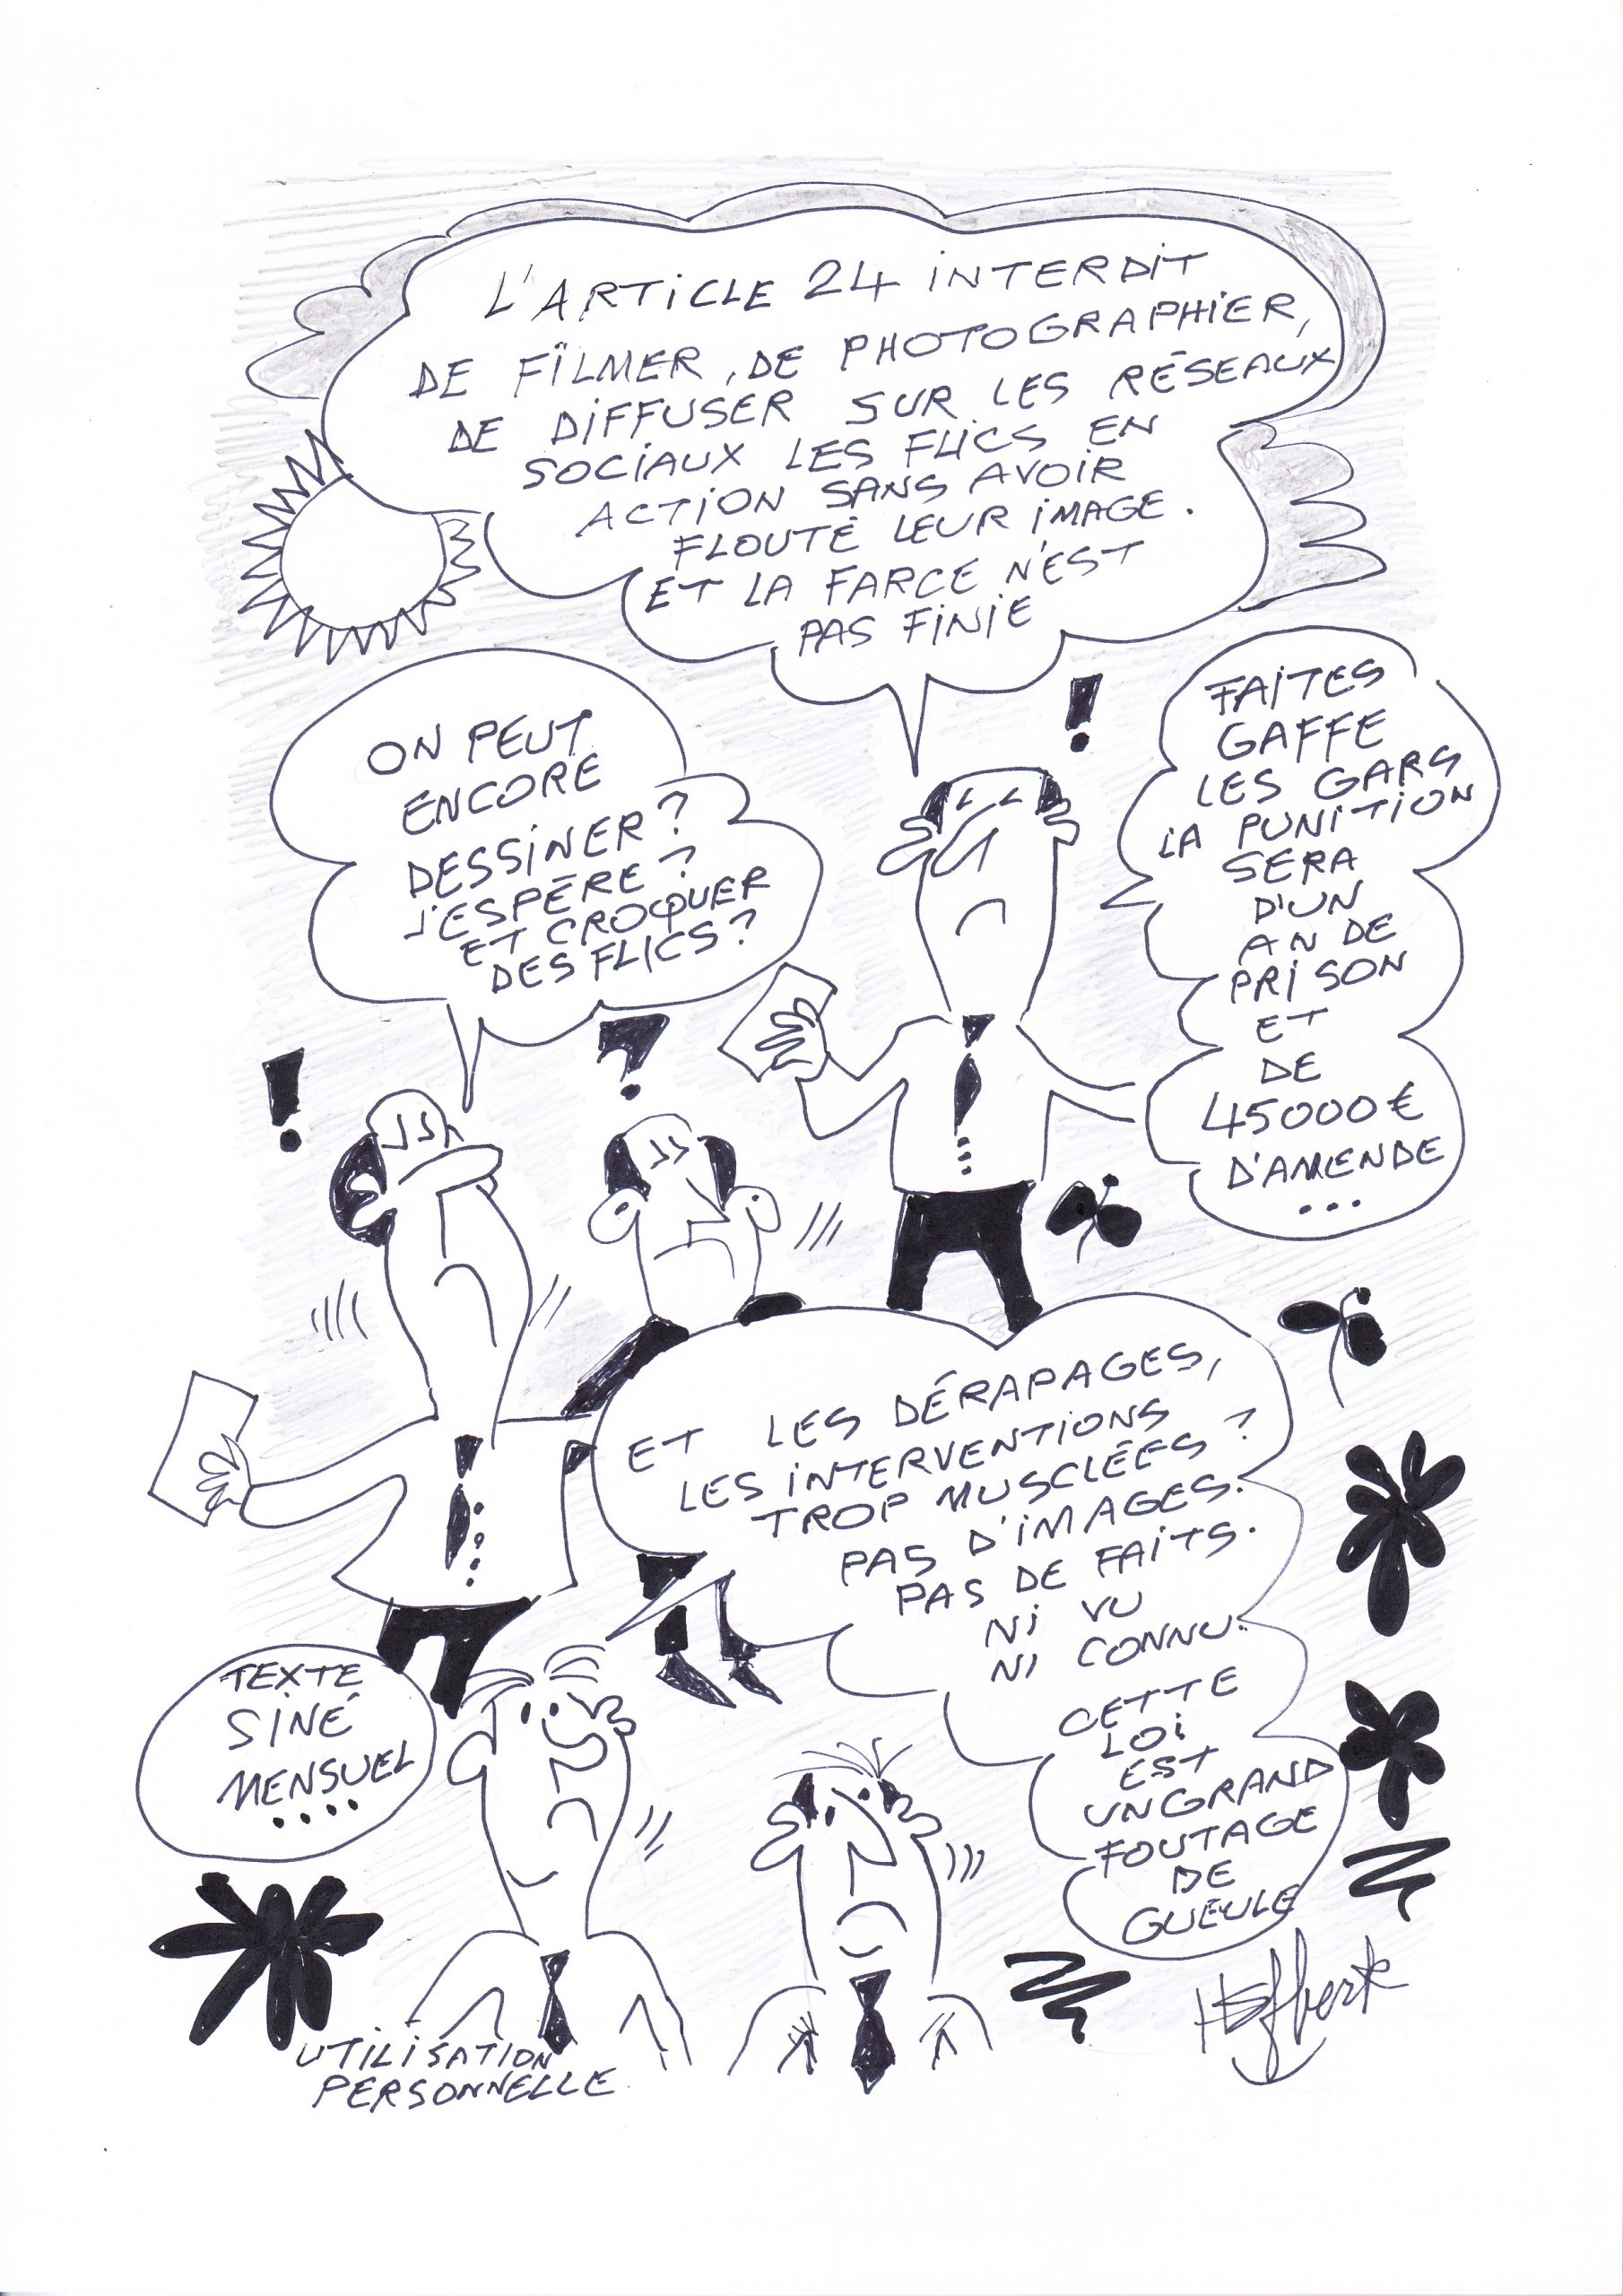 L'ARTICLE 24 INTERDIT
DE FILMER, DE PHOTOGRAPHIER,
DE DIFFUSER SUR LES RÉSEAUX
SOCIAUX LES FLICS EN
ACTION SANS AVOIR
FLOUTÉ LEUR IMAGE.
ET LA FARCE N'EST
PAS FINIE
ON PEUT
ENCORE
DESSINER ?
J'ESPÈRE ?
ET CROQUER
DES FLICS ?
!
FAITES
GAFFE
LES GARS
LA PUNITION
SERA
D'UN
AN DE
PRISON
ET
DE
45000 €
D'AMENDE
...
!
?
ET LES DÉRAPAGES,
LES INTERVENTIONS
TROP MUSCLÉES ?
PAS D'IMAGES.
PAS DE FAITS.
NI VU
NI CONNU.
CETTE
LOI
EST
UN GRAND
FOUTAGE
DE
GUEULE
TEXTE
SINÉ
MENSUEL
....
UTILISATION
PERSONNELLE